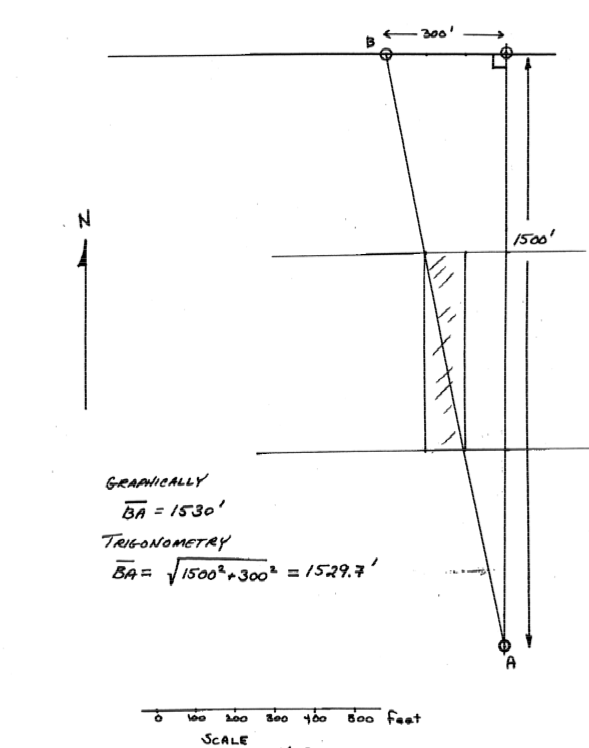 300'
B
N
1500'
GRAPHICALLY
BA = 1530'
TRIGONOMETRY
BA = √1500²+300² = 1529.7'
A
0 100 200 300 400 500 feet
SCALE